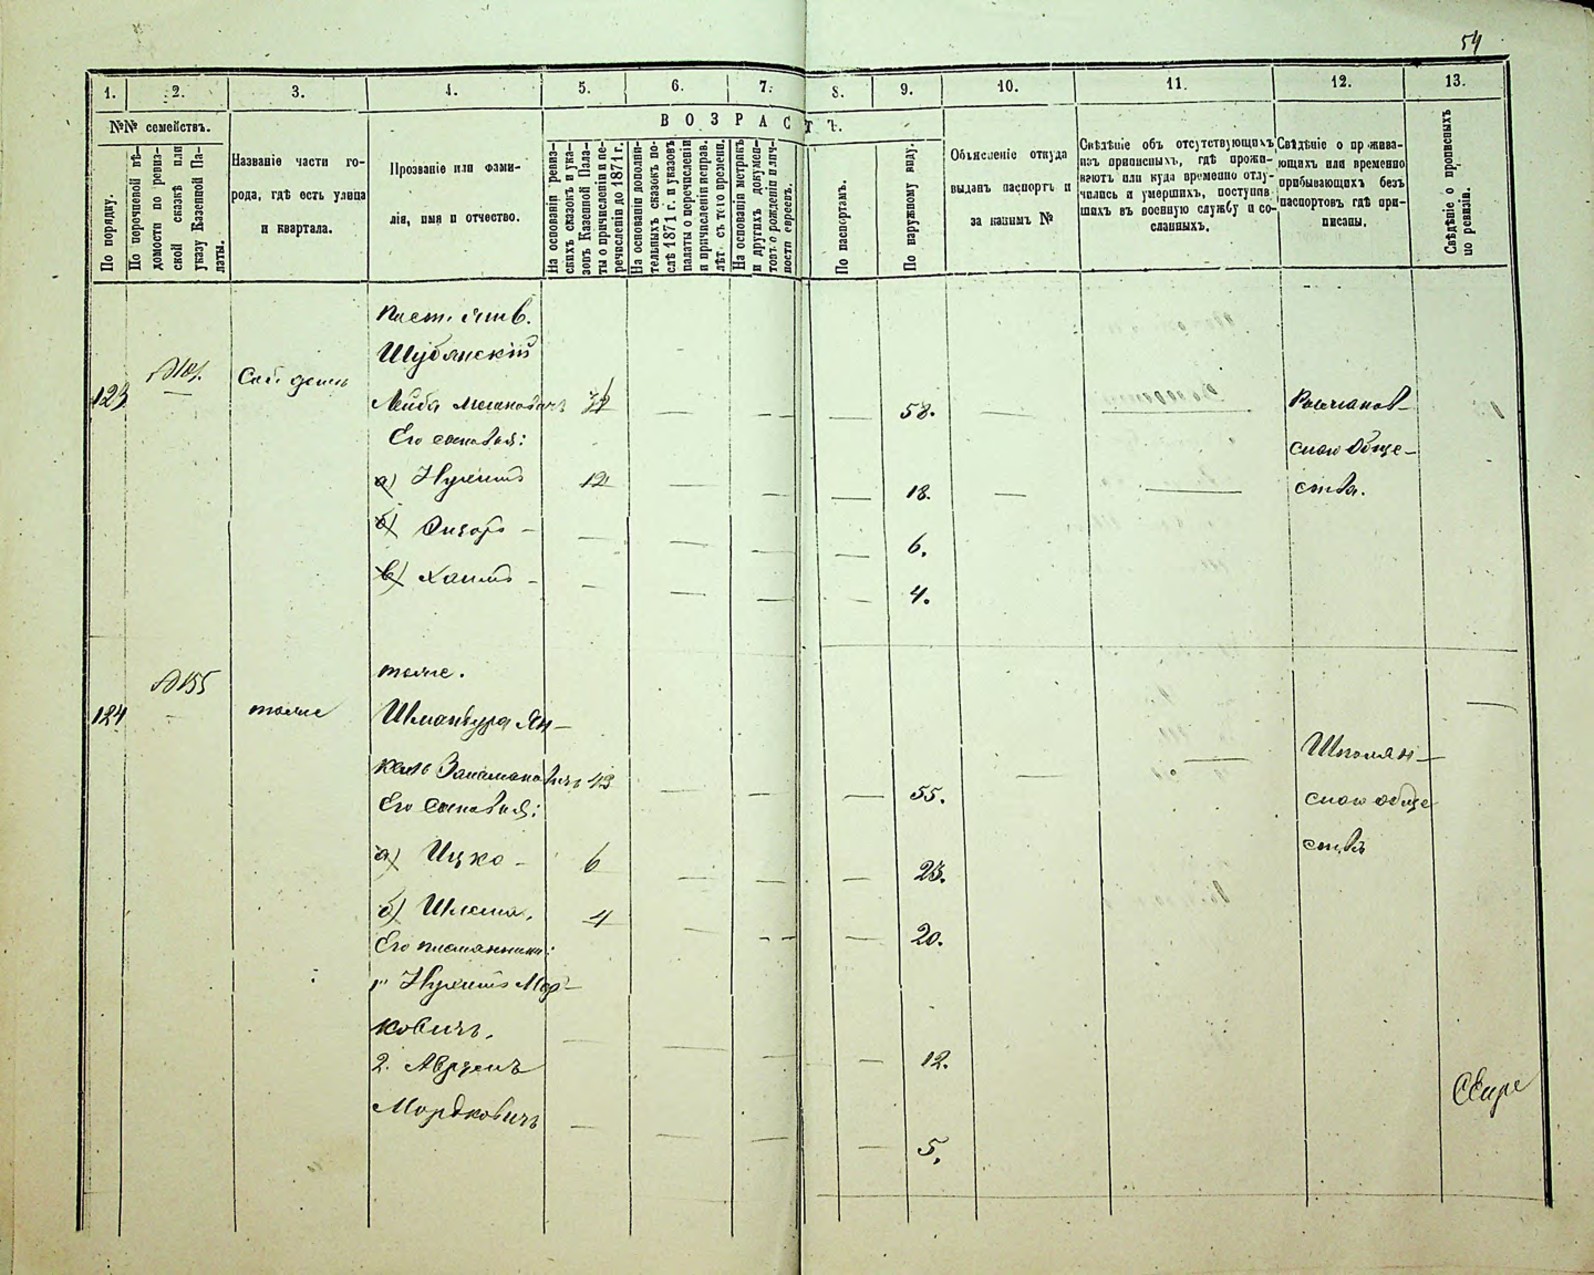 54
1. 2. 3. 4. 5. 6. 7. 8. 9. 10. 11. 12. 13.
№№ семействъ.
По порядку.
По перечневой вѣ-
домости по ревиз-
ской сказкѣ или
указу Казенной Па-
латы.
Названіе части го-
рода, гдѣ есть улица
и квартала.
Прозваніе или фами-
лія, имя и отчество.
ВОЗРАСТЪ.
На основаніи ревиз-
скихъ сказокъ и ука-
зовъ Казенной Пала-
ты о причисленіи и пе-
речисленіи до 1871 г.
На основаніи дополни-
тельныхъ сказокъ по-
слѣ 1871 г. и указовъ
палаты о перечисленіи
и причисленіи исправ.
лѣт съ того времени.
На основаніи метрикъ
и другихъ докумен-
товъ о рожденіи и лич-
ности евреевъ.
По паспортамъ.
По наружному виду.
Объясненіе откуда
выданъ паспортъ и
за какимъ №
Свѣдѣніе объ отсутствующихъ
изъ приписныхъ, гдѣ прожи-
ваютъ или куда временно отлу-
чились и умершихъ, поступив-
шихъ въ военную службу и со-
сланныхъ.
Свѣдѣніе о прожива-
ющихъ или временно
прибывающихъ безъ
паспортовъ гдѣ при-
писаны.
Свѣдѣніе о прописныхъ
по ревизіи.
Шубянскій
123 — Лейба — — — — 58. — —
Его сыновья:
а) Нухимъ 12 — — — 18. — —
б) — — — — — 6.
в) Хаимъ — — — — — 4.
ского обще-
ства.
№ 155 тоже.
124 — тоже Ян-
кель 43 — — — 55. — —
Его сыновья:
а) Ицко — 6 — — — 23.
б) Шлема, 4 — — — 20.
Его племянники:
1. Нухимъ Мор-
ковичъ. — — — — 12.
2.
Мордковичъ — — — — 5.
Шполян-
ского обще
ства